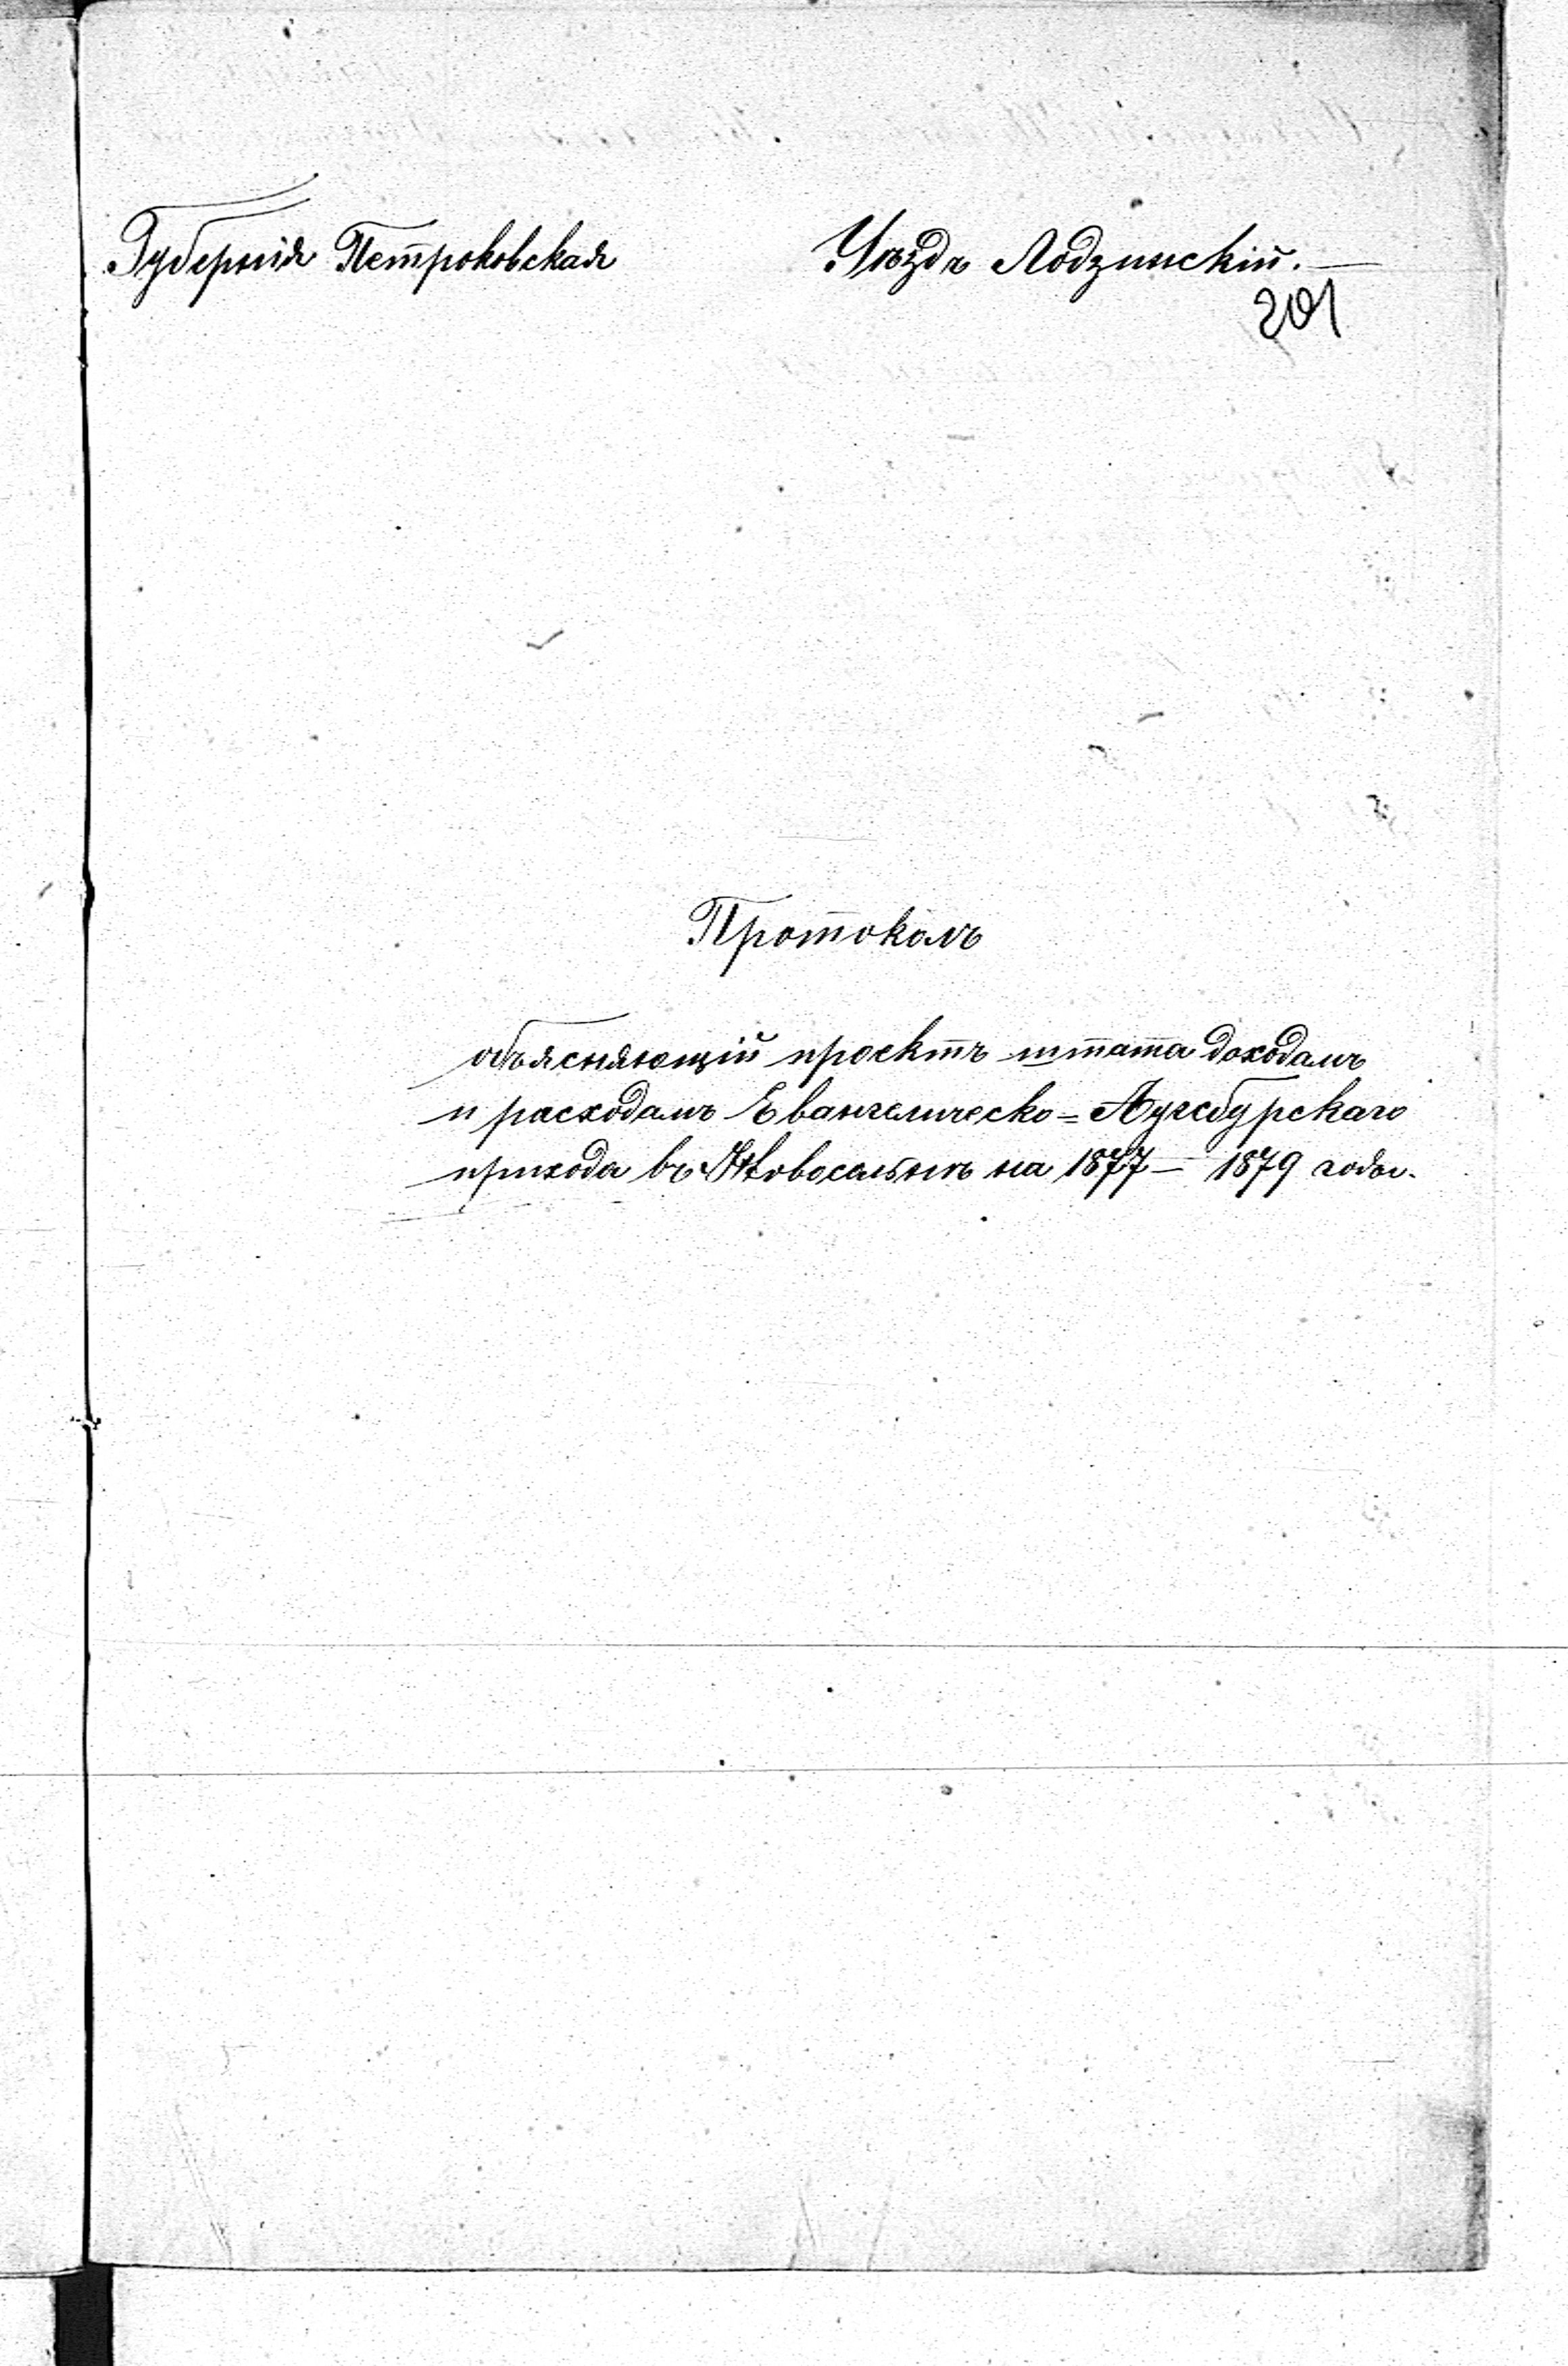 Губернія Петроковская Уѣздъ Лодзинскій.
201
Протоколъ
объясняющій проектъ штата доходамъ
и расходамъ Евангелическо-Аугсбургскаго
прихода въ Новосольнѣ на 1877 – 1879 годы.